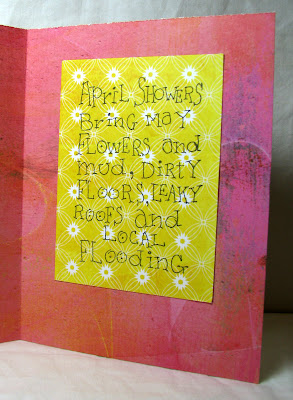 April Showers
Bring May
Flowers and
mud, Dirty
Floors, Leaky
Roofs and
Local
Flooding